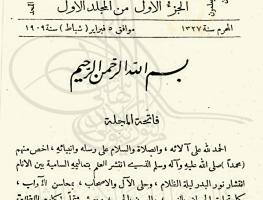 الجزء الأول من المجلد الأول
المحرم سنة ١٣٢٧
موافق ٥ فبراير (شباط) سنة ١٩٠٩
بسم الله الرحمن الرحيم
فاتحة المجلة
الحمد لله على آلائه ، والصلاة والسلام على رسله وانبيائه ، اخص منهم
(محمداً) صلى الله عليه وآله وسلم الذي انتشر العلم بتعاليمه السامية بين الانام
انتشار نور البدر ليلة الظلام ، وعلى الآل والاصحاب ، بمحاسن الآداب ،